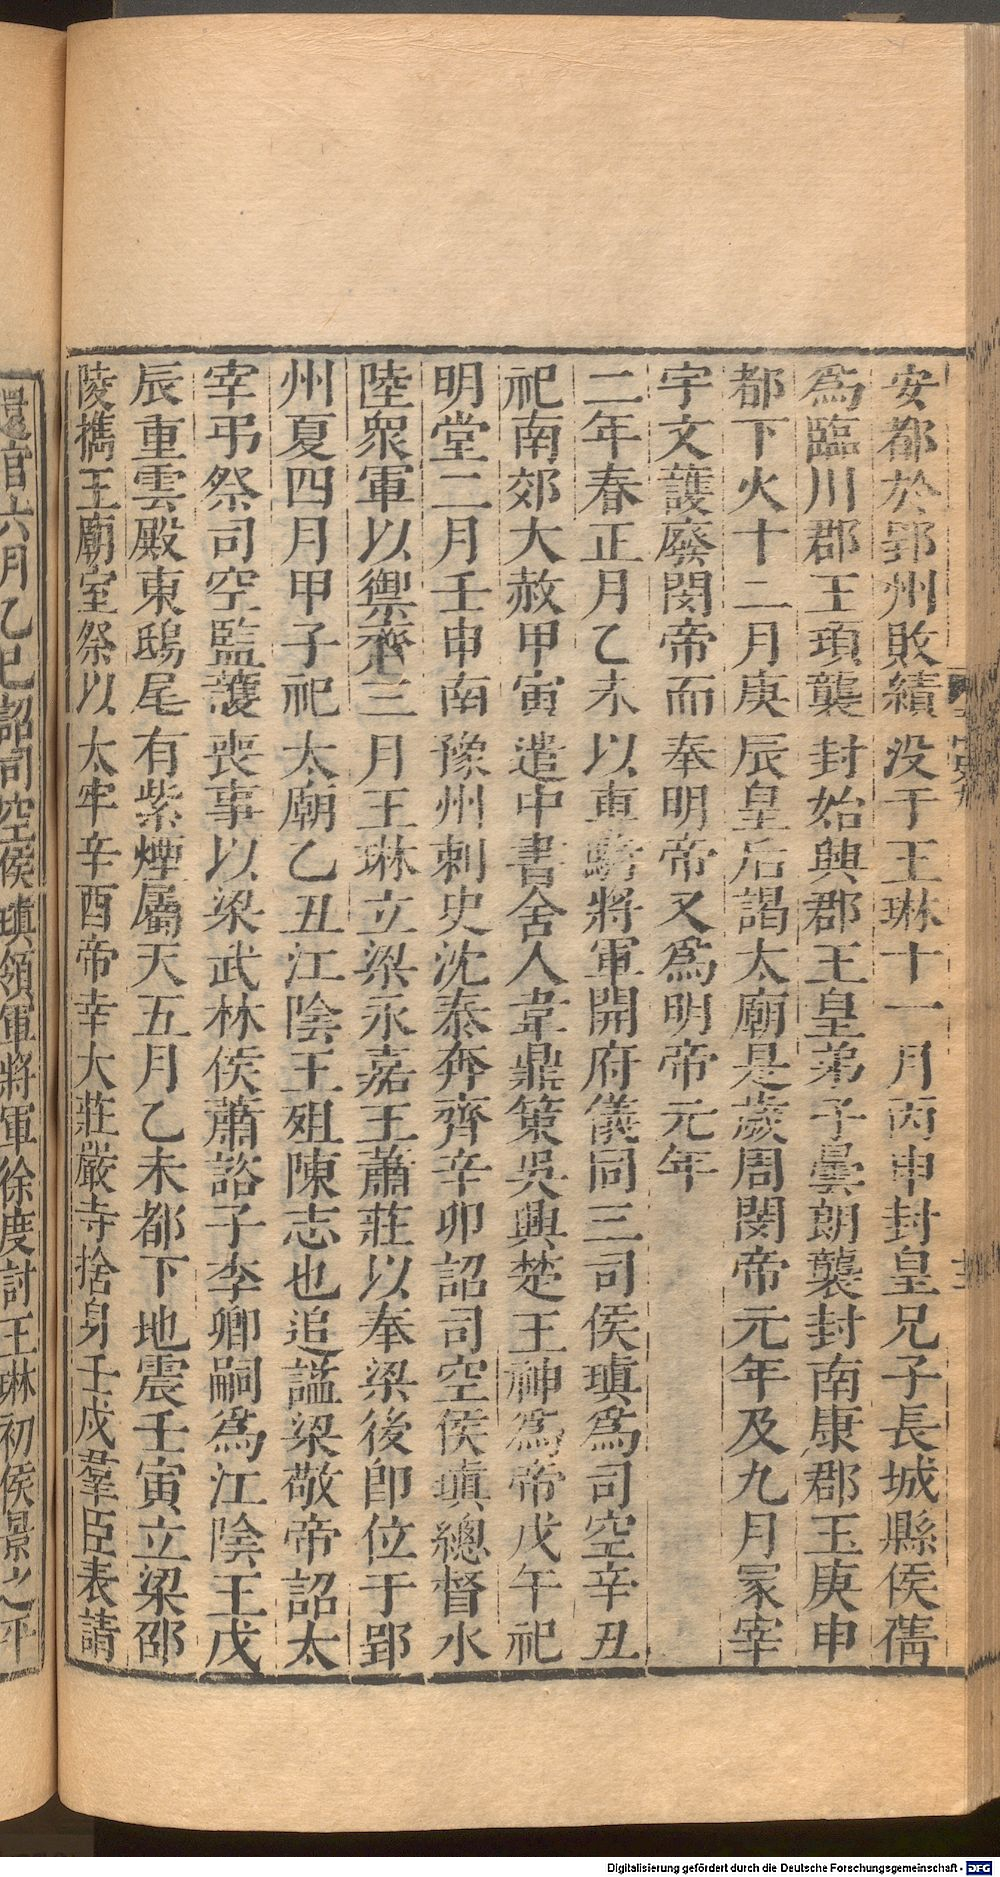 安都於郢州敗績没于王琳十一月丙申封皇兄子長城縣侯蒨
爲臨川郡王頊襲封始興郡王皇弟子曇朗襲封南康郡玉庚申
都下火十二月庚辰皇后謁太廟是歲周閔帝元年及九月冢宰
宇文護廢閔帝而奉明帝又爲明帝元年
二年春正月乙未以車騎將軍開府儀同三司侯瑱爲司空辛丑
祀南郊大赦甲寅遣中書舍人韋鼎策吳興楚王神爲帝戊午祀
明堂二月壬申南豫州刺史沈泰奔齊辛卯詔司空侯瑱總督水
陸衆軍以禦齊三月王琳立梁永嘉王蕭莊以奉梁後卽位于郢
州夏四月甲子祀太廟乙丑江陰王殂陳志也追謚梁敬帝詔太
宰弔祭司空監護喪事以梁武林侯蕭諮子李卿嗣爲江陰王戊
辰重雲殿東鴟尾有紫煙屬天五月乙未都下地震壬寅立梁邵
陵攜王廟室祭以太牢辛酉帝幸大莊嚴寺捨身壬戌羣臣表請
還宫六月乙巳詔司空侯瑱領軍將軍徐度討王琳初侯景之平
Digitalisierung gefördert durch die Deutsche Forschungsgemeinschaft - DFG